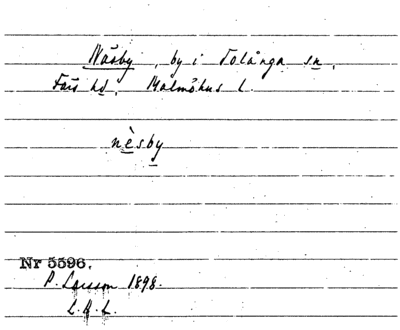 Näsby, by i Tolånga sn,
Färs hd, Malmöhus l.
nèsby
Nr 5596.
P. Larsson 1898.
L.A.L.